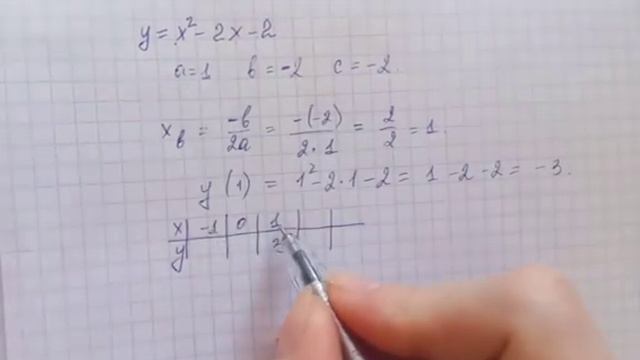 y = x² - 2x - 2
a=1 b = -2 c = -2.
x_в = -b/2a = -(-2)/2·1 = 2/2 = 1.
y(1) = 1² - 2·1 - 2 = 1 - 2 - 2 = -3.
x | -1 | 0 | 1 | |
y | | | | |